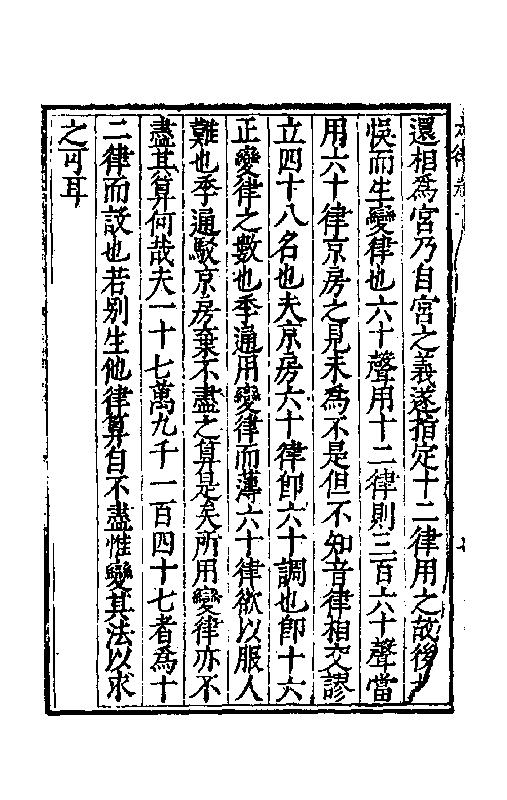 還相為宮乃自宮之義遂指定十二律用之故後
悞而生變律也六十聲用十二律則三百六十聲當
用六十律京房之見未為不是但不知音律相交謬
立四十八名也夫京房六十律卽六十調也卽十六
正變律之數也季通用變律而薄六十律欲以服人
難也季通駁京房棄不盡之算是矣所用變律亦不
盡其算何哉夫一十七萬九千一百四十七者為十
二律而設也若别生他律算自不盡惟變其法以求
之可耳